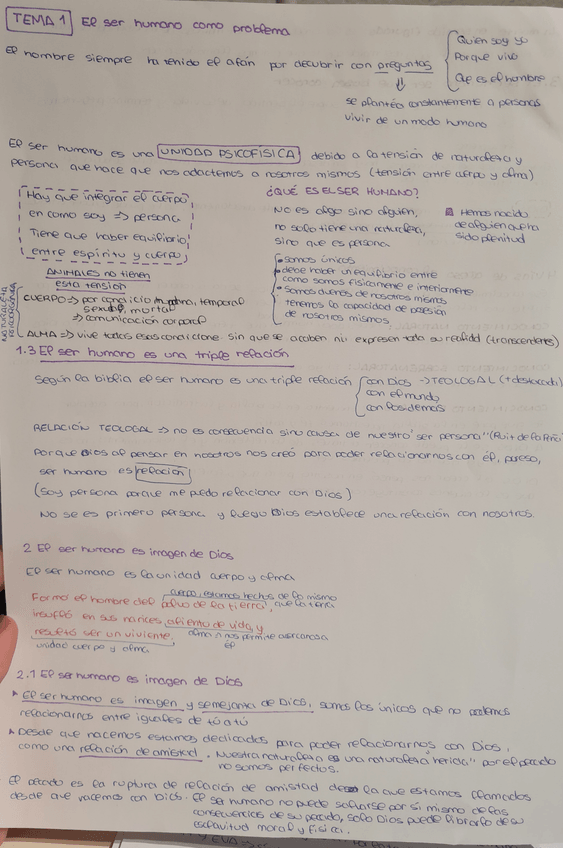 TEMA 1 El ser humano como problema
El hombre siempre ha tenido el afán por decubrir con preguntas
Quien soy yo
Porque vivo
Que es el hombre
se plantéa constantemente a personas
vivir de un modo humano
El ser humano es una UNIDAD PSICOFÍSICA debido a la tensión de naturaleza y
persona que hace que nos adactemos a nosotros mismos (tensión entre cuerpo y alma)
Hay que integrar el cuerpo
en como soy => persona
Tiene que haber equilibrio
entre espíritu y cuerpo
ANIMALES no tienen
esta tensión
¿QUÉ ES EL SER HUMANO?
NO es algo sino alguien,
no solo tiene una naturaleza,
sino que es persona
Hemos nacido
de alguien que ha
sido plenitud
somos únicos
debe haber un equilibrio entre
como somos fisicamente e interiormente
Somos dueños de nosotros mismos
tenemos la capacidad de
de nosotros mismos
NATURALEZA
CUERPO => por condición temporal
sexual, mortal
=> comunicación corporal
ALMA => vive todas esas condicione sin que se acaben ni expresen toda su realidad (transcenderes)
1.3 El ser humano es una triple relación
Según la biblia el ser humano es una triple relación
con Dios -> TEOLOGAL (+ destacada)
con el mundo
con los demás
RELACIÓN TEOLOGAL => no es consecuencia sino causa de nuestro "ser persona" (Ruiz de la Peña)
Porque Dios al pensar en nosotros nos creó para poder relacionarnos con él, por eso,
ser humano es relación
(Soy persona porque me puedo relacionar con Dios)
No se es primero persona y luego Dios establece una relación con nosotros.
2 El ser humano es imagen de Dios
El ser humano es la unidad cuerpo y alma
cuerpo, estamos hechos de lo mismo
que la tierra
Formo el hombre del polvo de la tierra,
insufló en sus narices, aliento de vida, y
resultó ser un viviente,
alma n nos permite acercarnos a
él
unidad cuerpo y alma
2.1 El ser humano es imagen de Dios
El ser humano es imagen y semejanza de Dios, somos los únicos que no podemos
relacionarnos entre iguales de tú a tú
Desde que nacemos estamos declicados para poder relacionarnos con Dios,
como una relación de amistad. Nuestra naturaleza es una naturaleza "herida" por el pecado
no somos perfectos.
El pecado es la ruptura de relación de amistad de la que estamos llamados
desde que nacemos con Dios. El ser humano no puede salvarse por si mismo de las
consecuencias de su pecado, solo Dios puede librarlo de su
esclavitud moral y física.